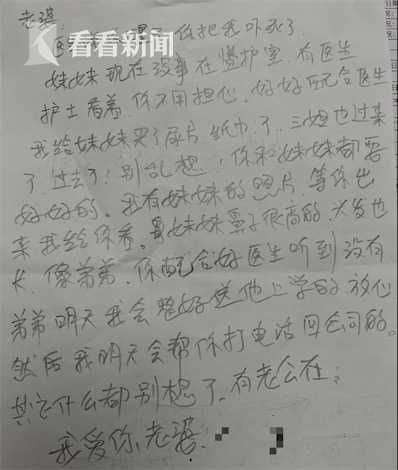 老婆:
看看新闻
你把我吓死了
妹妹现在没事在监护室,有医生
护士看着,你不用担心,好好配合医生
我给妹妹买了尿片纸巾了,三姐也过来
了,过去了,别乱想,你和妹妹都要
好好的。我有妹妹的照片,等你出
来我给你看。妹妹鼻子很高的,头发也
长,像弟弟,你配合好医生听到没有
弟弟明天我会整好送他上学的放心
然后我明天会帮你打电话回公司的。
其它什么都别想了,有老公在:
我爱你,老婆: